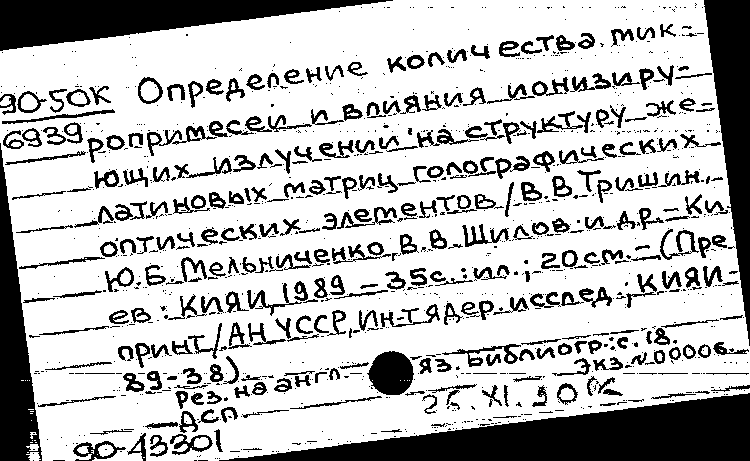 90-50К Определение количества мик-
6939 ропримесей и влияния ионизиру-
ющих излучений на структуру же-
латиновых матриц голографических
оптических элементов / В.В. Тришин,
Ю.Б. Мельниченко, В.В. Шилов и др. - Ки
ев: КИЯИ, 1989. - 35с.: ил.; 20см. - (Пре
принт / АН УССР, Ин-т ядер. исслед.; КИЯИ-
89-38).
Рез. на англ. яз. Библиогр.: с. 18.
ДСП. Экз. №00006.
90-43301 26.XI.90